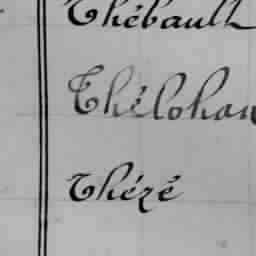 Thébault
Thélohan
Thézé